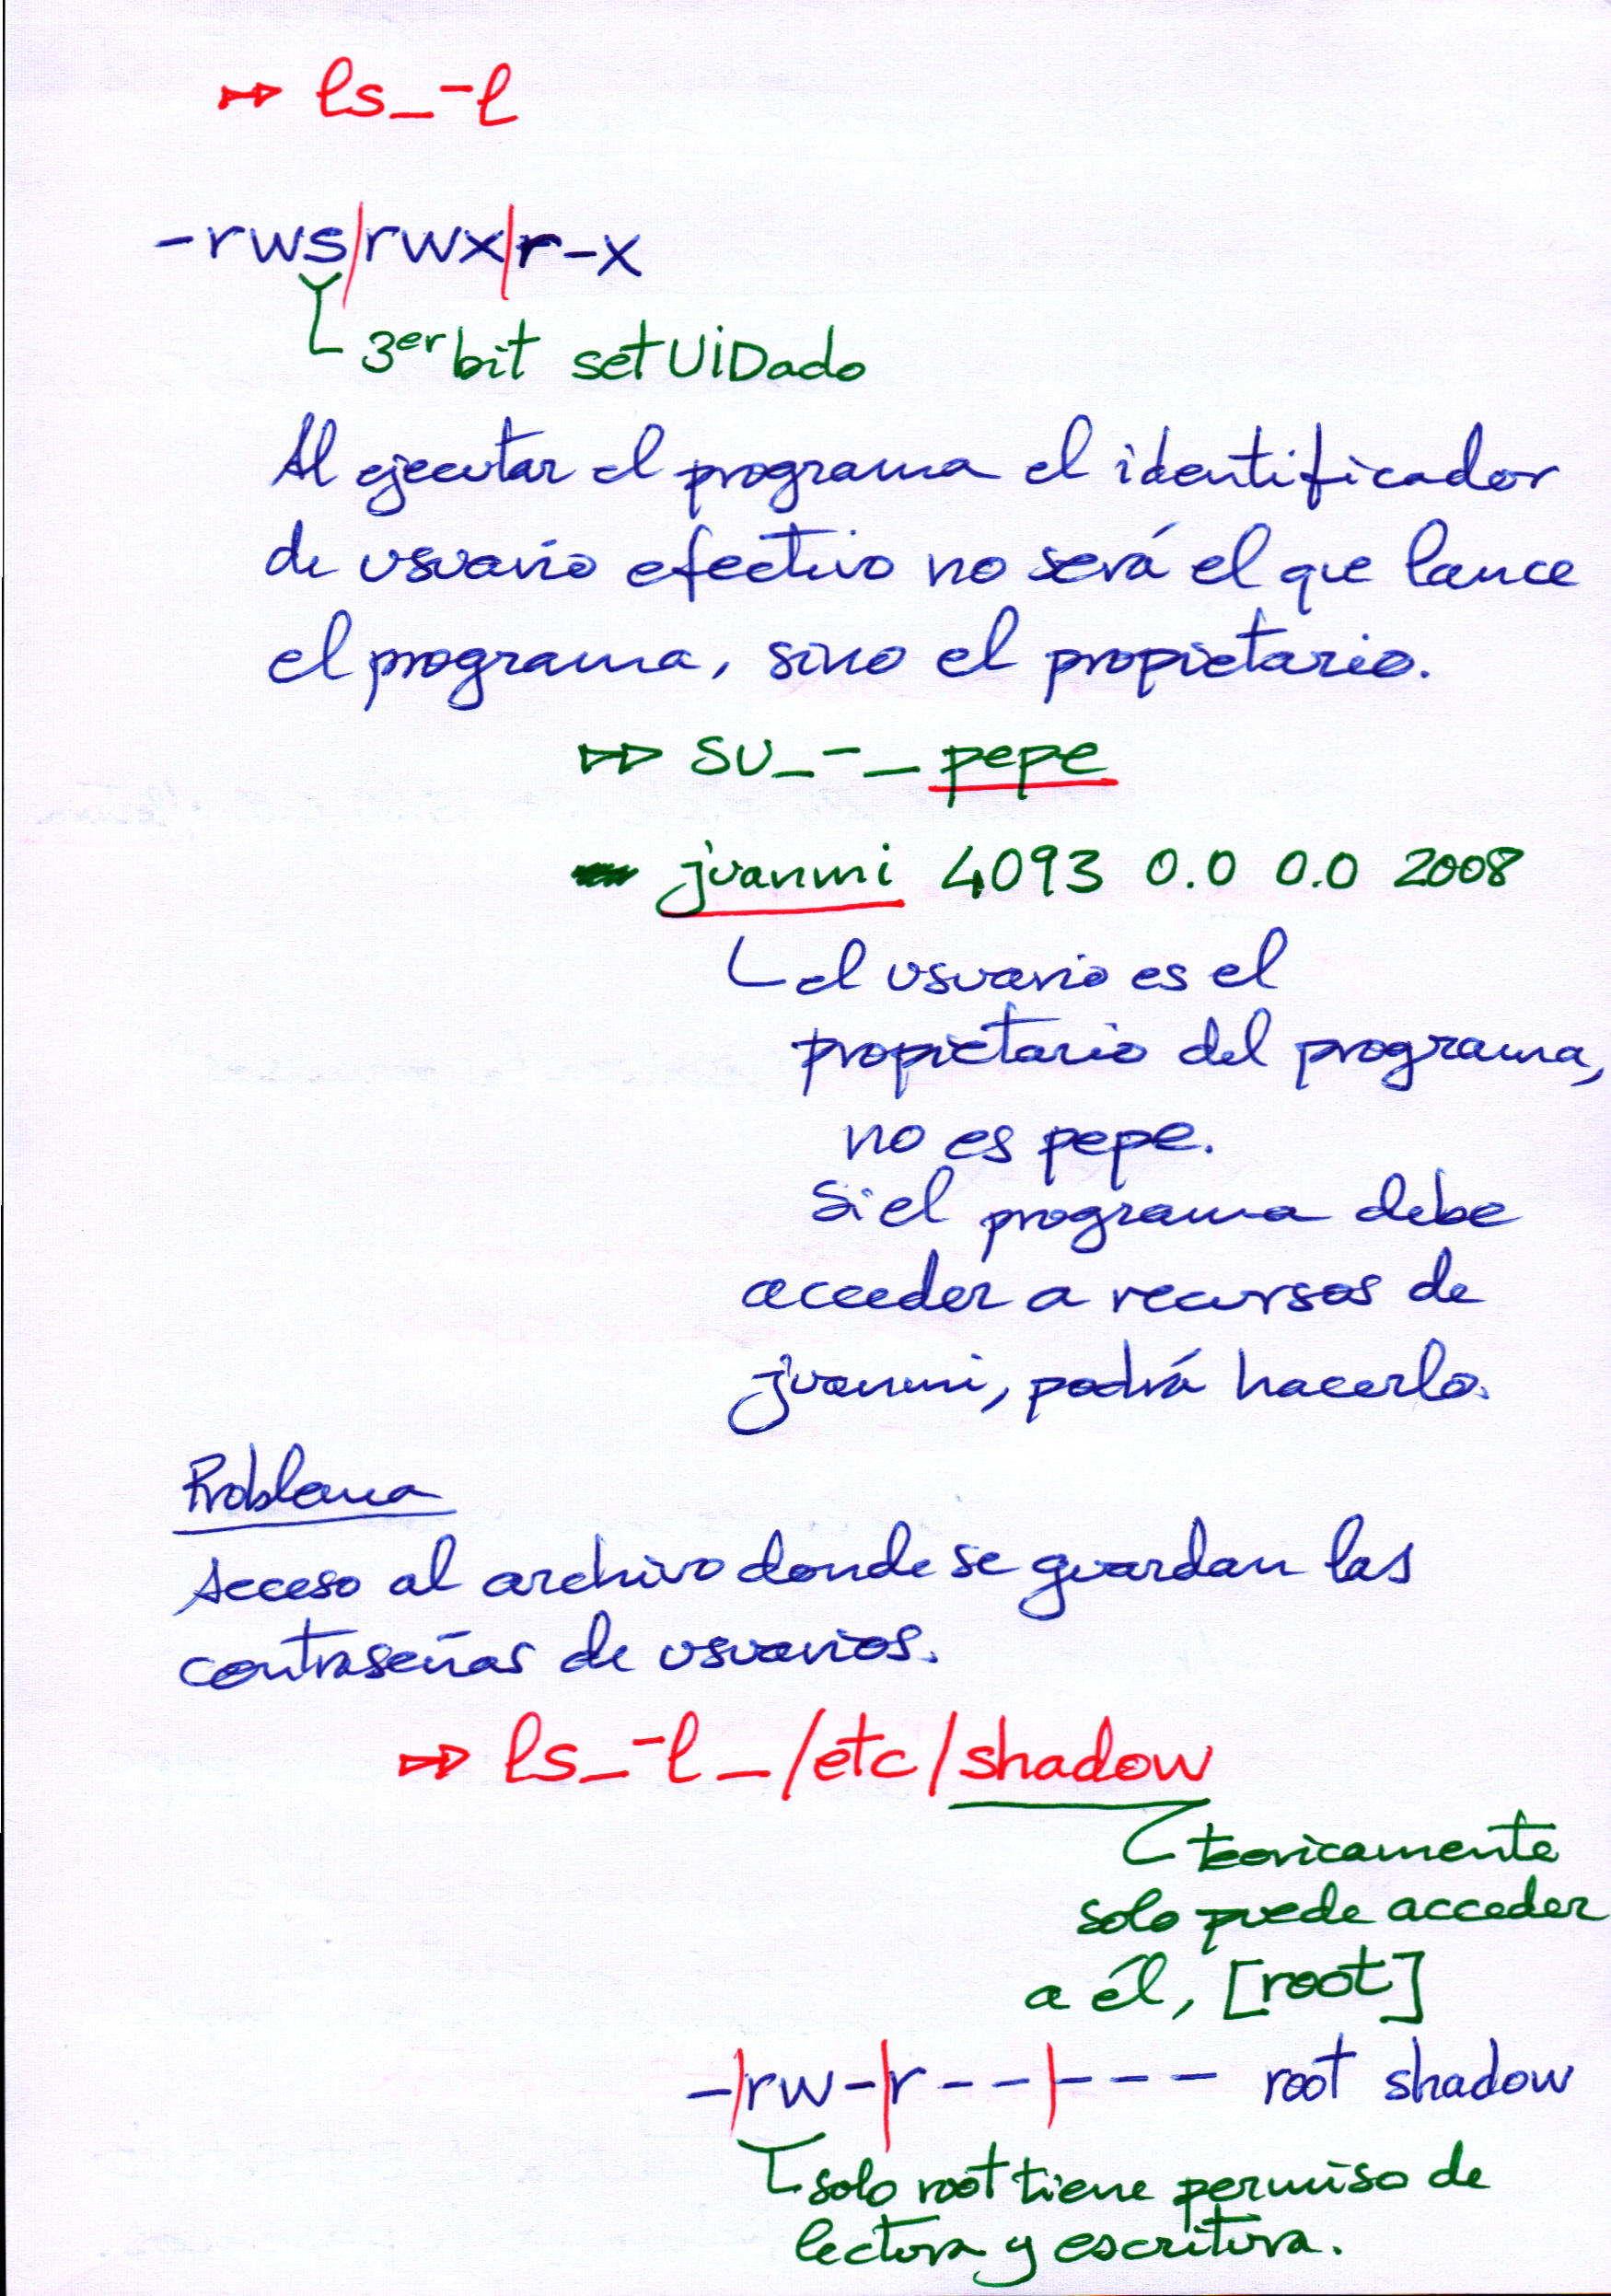 ↦ ls_-l
-rws/rwx/r-x
3er bit setUiDado
Al ejecutar el programa el identificador
de usuario efectivo no será el que lance
el programa, sino el propietario.
▷▷ su_-_pepe
juanmi 4093 0.0 0.0 2008
el usuario es el
propietario del programa,
no es pepe.
Si el programa debe
acceder a recursos de
juanmi, podrá hacerlo.
Problema
Acceso al archivo donde se guardan las
contraseñas de usuarios.
▷▷ ls_-l_/etc/shadow
teoricamente
solo puede acceder
a él, [root]
-|rw-|r--|--- root shadow
solo root tiene permiso de
lectura y escritura.